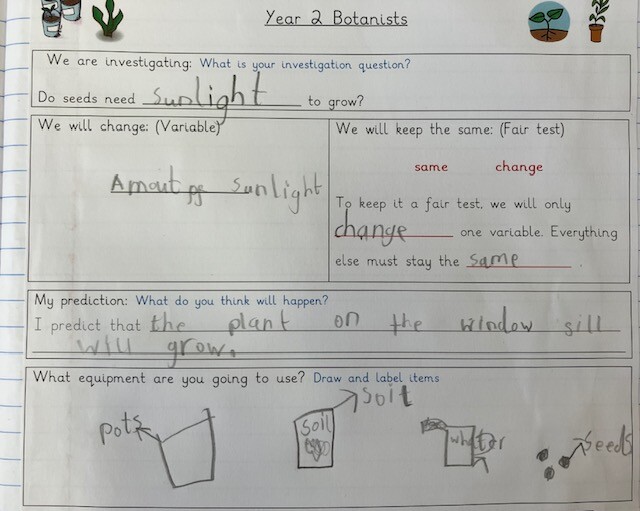 Year 2 Botanists
We are investigating: What is your investigation question?
Do seeds need sunlight to grow?
We will change: (Variable)
Amout of sunlight
We will keep the same: (Fair test)
same change
To keep it a fair test, we will only
change one variable. Everything
else must stay the same.
My prediction: What do you think will happen?
I predict that the plant on the window sill
will grow.
What equipment are you going to use? Draw and label items
pots
soil
soil
whater
seeds